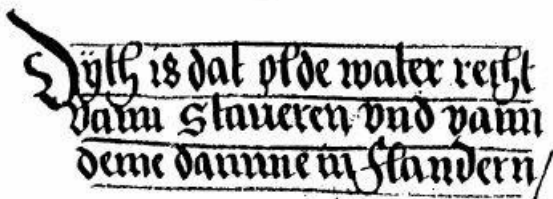 Dÿth is dat olde water recht
vann Staueren vnd vann
deme damme in flandern /